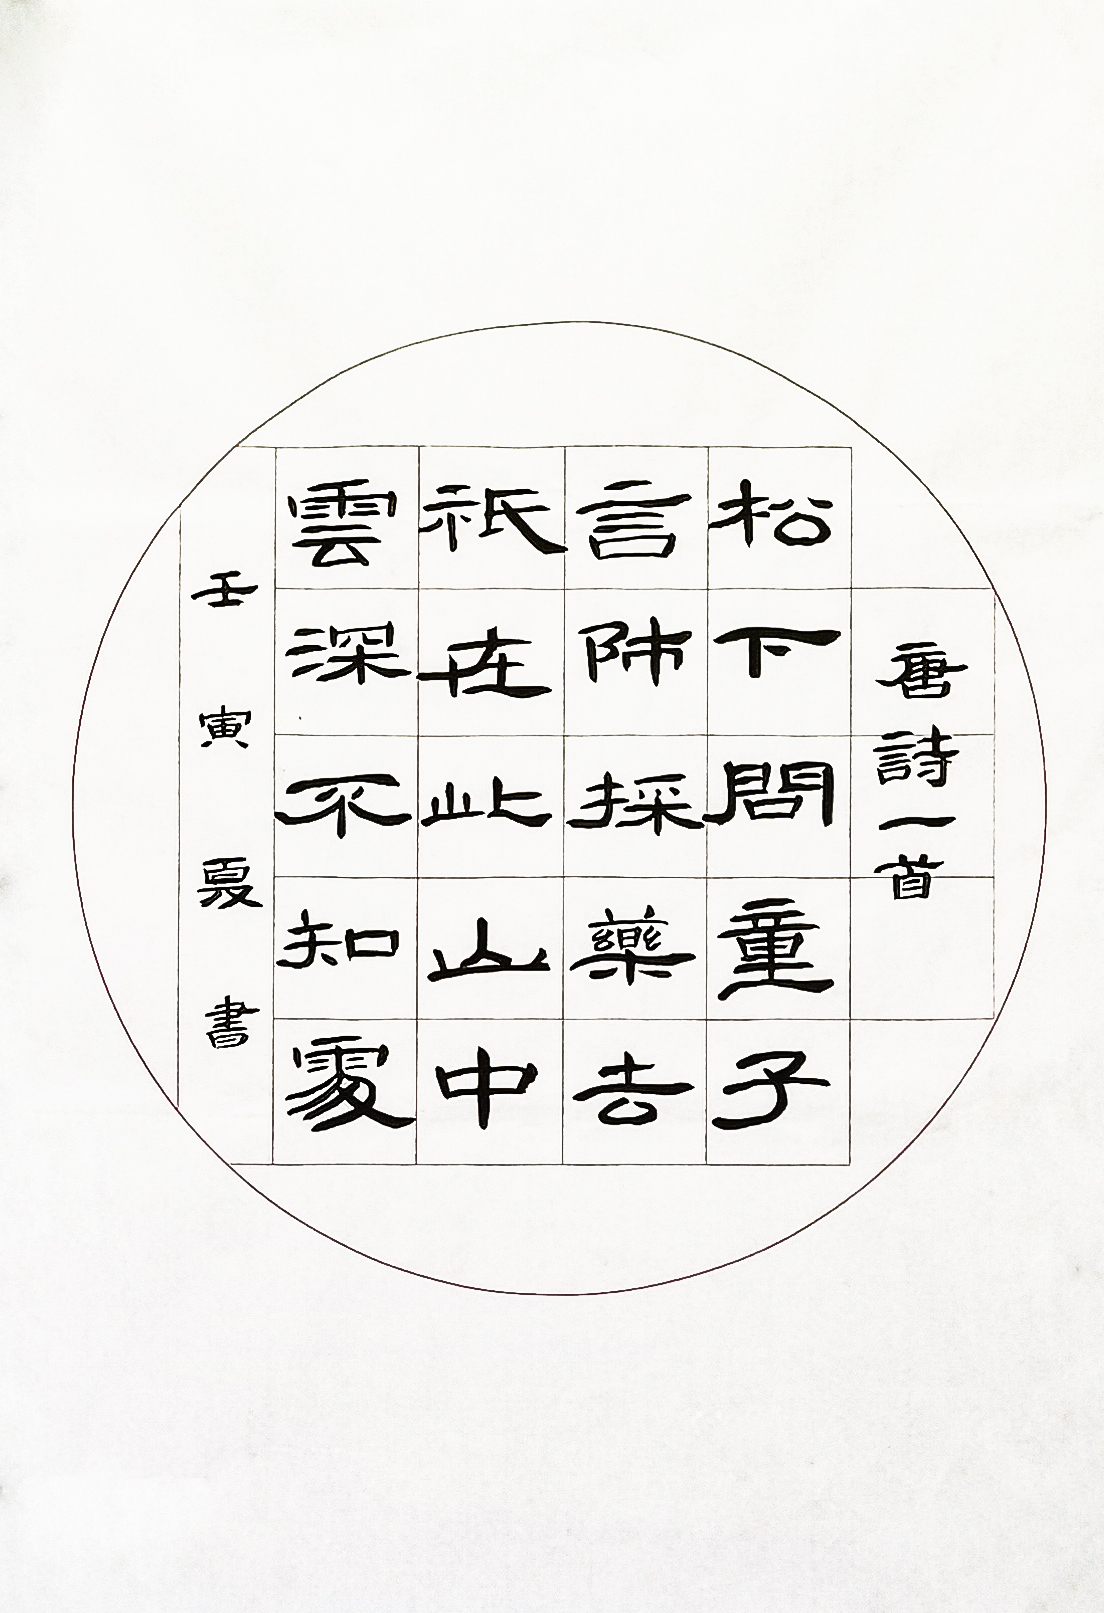 唐詩一首
松下問童子
言師採藥去
祇在此山中
雲深不知處
壬寅夏書